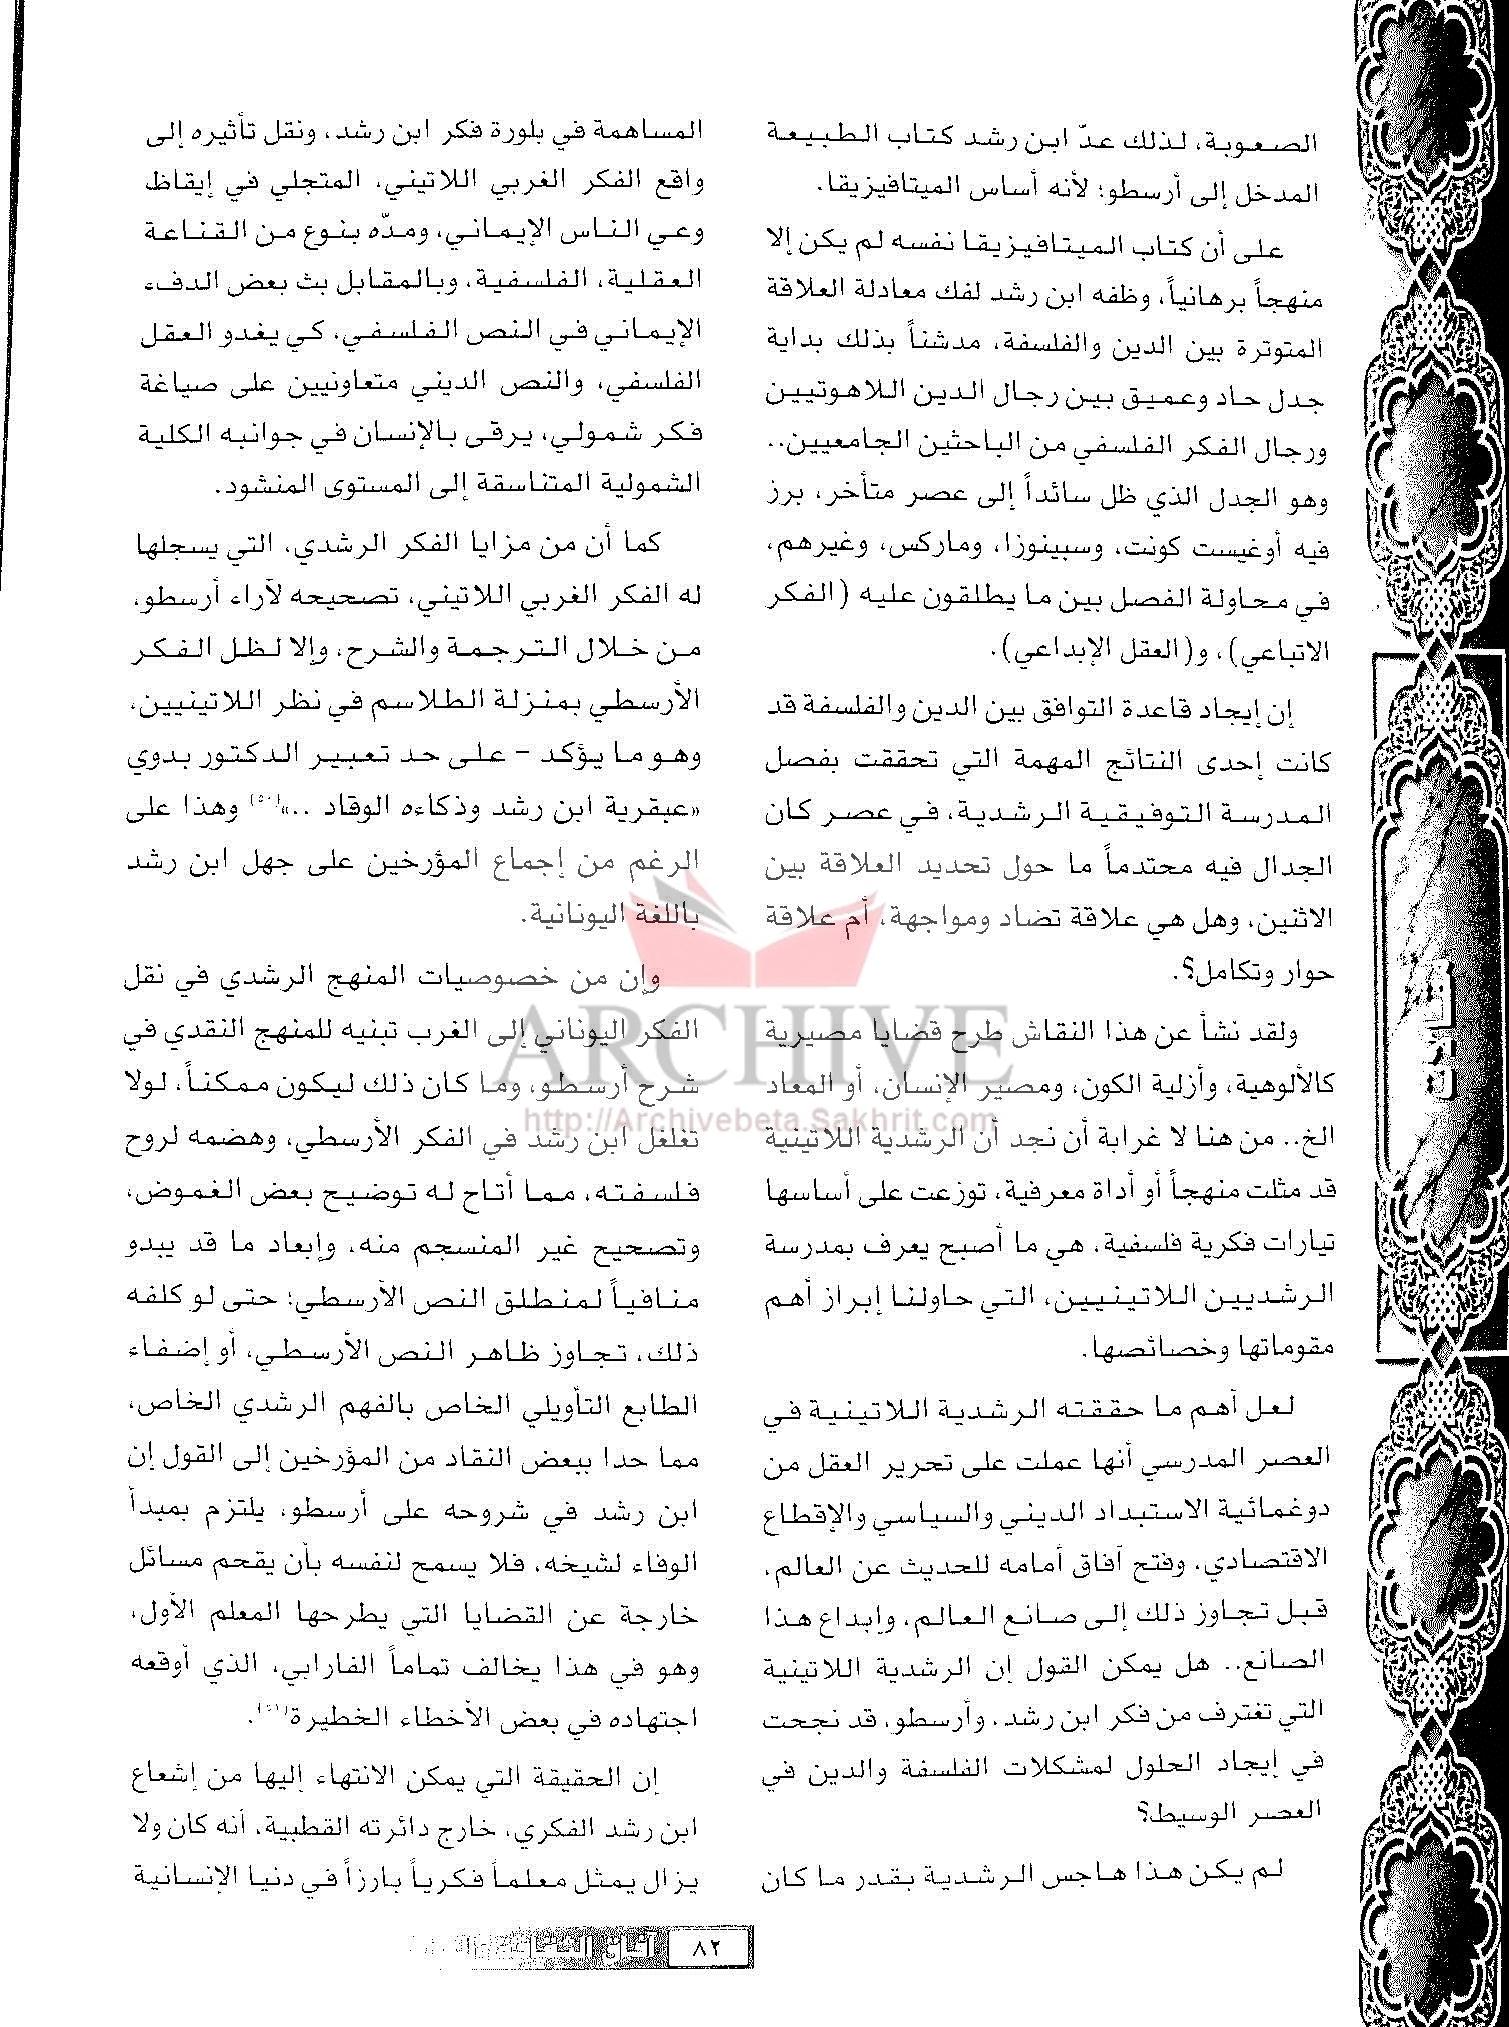 الصعوبة، لذلك عدّ ابن رشد كتاب الطبيعة
المدخل إلى أرسطو؛ لأنه أساس الميتافيزيقا.
على أن كتاب الميتافيزيقا نفسه لم يكن إلا
منهجاً برهانياً، وظفه ابن رشد لفك معادلة العلاقة
المتوترة بين الدين والفلسفة، مدشناً بذلك بداية
جدل حاد وعميق بين رجال الدين اللاهوتيين
ورجال الفكر الفلسفي من الباحثين الجامعيين..
وهو الجدل الذي ظل سائداً إلى عصر متأخر، برز
فيه أوغيست كونت، وسبينوزا، وماركس، وغيرهم،
في محاولة الفصل بين ما يطلقون عليه (الفكر
الاتباعي)، و(العقل الإبداعي).
إن إيجاد قاعدة التوافق بين الدين والفلسفة قد
كانت إحدى النتائج المهمة التي تحققت بفصل
المدرسة التوفيقية الرشدية، في عصر كان
الجدال فيه محتدماً ما حول تحديد العلاقة بين
الاثنين، وهل هي علاقة تضاد ومواجهة، أم علاقة
حوار وتكامل؟.
ولقد نشأ عن هذا النقاش طرح قضايا مصيرية
كالألوهية، وأزلية الكون، ومصير الإنسان، أو المعاد
الخ.. من هنا لا غرابة أن نجد أن الرشدية اللاتينية
قد مثلت منهجاً أو أداة معرفية، توزعت على أساسها
تيارات فكرية فلسفية، هي ما أصبح يعرف بمدرسة
الرشديين اللاتينيين، التي حاولنا إبراز أهم
مقوماتها وخصائصها.
لعل أهم ما حققته الرشدية اللاتينية في
العصر المدرسي أنها عملت على تحرير العقل من
دوغمائية الاستبداد الديني والسياسي والإقطاع
الاقتصادي، وفتح آفاق أمامه للحديث عن العالم،
قبل تجاوز ذلك إلى صانع العالم، وإبداع هذا
الصانع.. هل يمكن القول إن الرشدية اللاتينية
التي تغترف من فكر ابن رشد، وأرسطو، قد نجحت
في إيجاد الحلول لمشكلات الفلسفة والدين في
العصر الوسيط؟
لم يكن هذا هاجس الرشدية بقدر ما كان
المساهمة في بلورة فكر ابن رشد، ونقل تأثيره إلى
واقع الفكر الغربي اللاتيني، المتجلي في إيقاظ
وعي الناس الإيماني، ومدّه بنوع من القناعة
العقلية، الفلسفية، وبالمقابل بث بعض الدفء
الإيماني في النص الفلسفي، كي يغدو العقل
الفلسفي، والنص الديني متعاونيين على صياغة
فكر شمولي، يرقى بالإنسان في جوانبه الكلية
الشمولية المتناسقة إلى المستوى المنشود.
كما أن من مزايا الفكر الرشدي، التي يسجلها
له الفكر الغربي اللاتيني، تصحيحه لآراء أرسطو،
من خلال الترجمة والشرح، وإلا لظل الفكر
الأرسطي بمنزلة الطلاسم في نظر اللاتينيين،
وهو ما يؤكد - على حد تعبير الدكتور بدوي
«عبقرية ابن رشد وذكاءه الوقاد ..»(٥٠) وهذا على
الرغم من إجماع المؤرخين على جهل ابن رشد
باللغة اليونانية.
وإن من خصوصيات المنهج الرشدي في نقل
الفكر اليوناني إلى الغرب تبنيه للمنهج النقدي في
شرح أرسطو، وما كان ذلك ليكون ممكناً، لولا
تغلغل ابن رشد في الفكر الأرسطي، وهضمه لروح
فلسفته، مما أتاح له توضيح بعض الغموض،
وتصحيح غير المنسجم منه، وإبعاد ما قد يبدو
منافياً لمنطلق النص الأرسطي؛ حتى لو كلفه
ذلك، تجاوز ظاهر النص الأرسطي، أو إضفاء
الطابع التأويلي الخاص بالفهم الرشدي الخاص،
مما حدا ببعض النقاد من المؤرخين إلى القول إن
ابن رشد في شروحه على أرسطو، يلتزم بمبدأ
الوفاء لشيخه، فلا يسمح لنفسه بأن يقحم مسائل
خارجة عن القضايا التي يطرحها المعلم الأول،
وهو في هذا يخالف تماماً الفارابي، الذي أوقعه
اجتهاده في بعض الأخطاء الخطيرة(٥١).
إن الحقيقة التي يمكن الانتهاء إليها من إشعاع
ابن رشد الفكري، خارج دائرته القطبية، أنه كان ولا
يزال يمثل معلماً فكرياً بارزاً في دنيا الإنسانية
ARCHIVE
http://Archivebeta.Sakhrit.com
٨٢ آفاق الثقافة